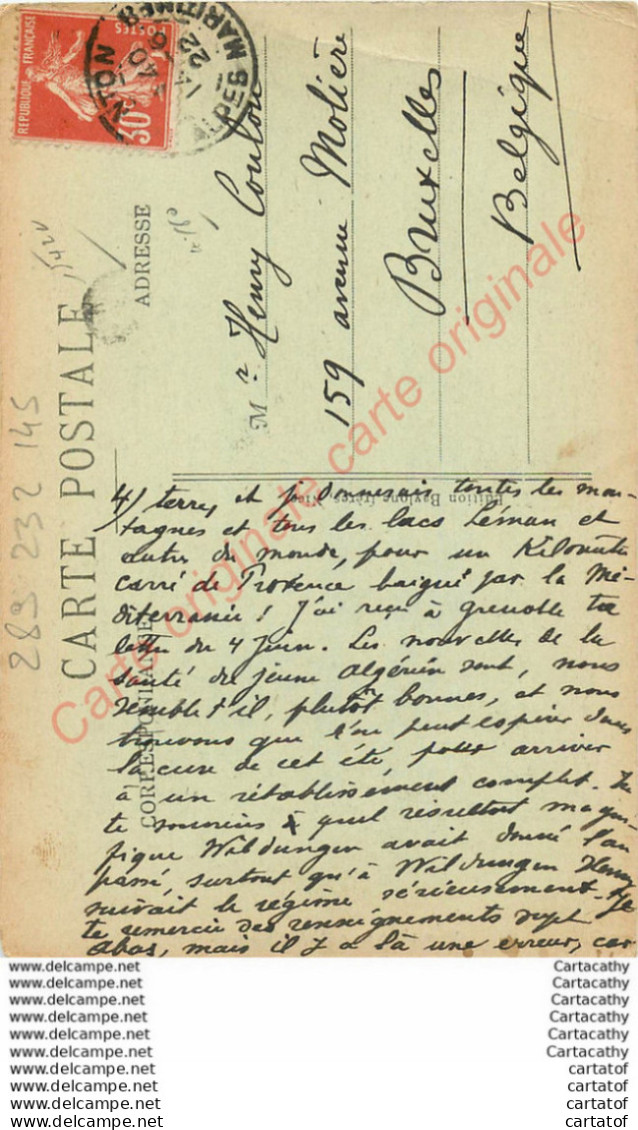 RÉPUBLIQUE FRANÇAISE
POSTES
30c
TON
22
ALPES MARITIMES
CARTE POSTALE
ADRESSE
CORRESPONDANCE
Mr Henry Coulon
159 avenue Molière
Bruxelles
Belgique
Edition Baylone frères
289 232 145
4) terres et je donnerais toutes les mon-
tagnes et tous les lacs Léman et
autres du monde, pour un Kilomètre
carré de Provence baigné par la Mé-
diterranée ! J'ai reçu à Grenoble ta
lettre du 4 juin. Les nouvelles de la
santé du jeune algérien sont, nous
semble t'il, plutôt bonnes, et nous
trouvons que l'on peut espérer dans
la cure de cet été, pour arriver
à un rétablissement complet. Tu
te souviens à quel résultat magni-
fique Wildungen avait donné l'an
passé, surtout qu'à Wildungen Henry
suivait le régime sérieusement. Je
te remercie des renseignements sept
abas, mais il y a là une erreur, car
Carte originale carte originale
www.delcampe.net
www.delcampe.net
www.delcampe.net
www.delcampe.net
www.delcampe.net
www.delcampe.net
www.delcampe.net
www.delcampe.net
www.delcampe.net
www.delcampe.net
Cartacathy
Cartacathy
Cartacathy
Cartacathy
Cartacathy
Cartacathy
cartatof
cartatof
cartatof
cartatof